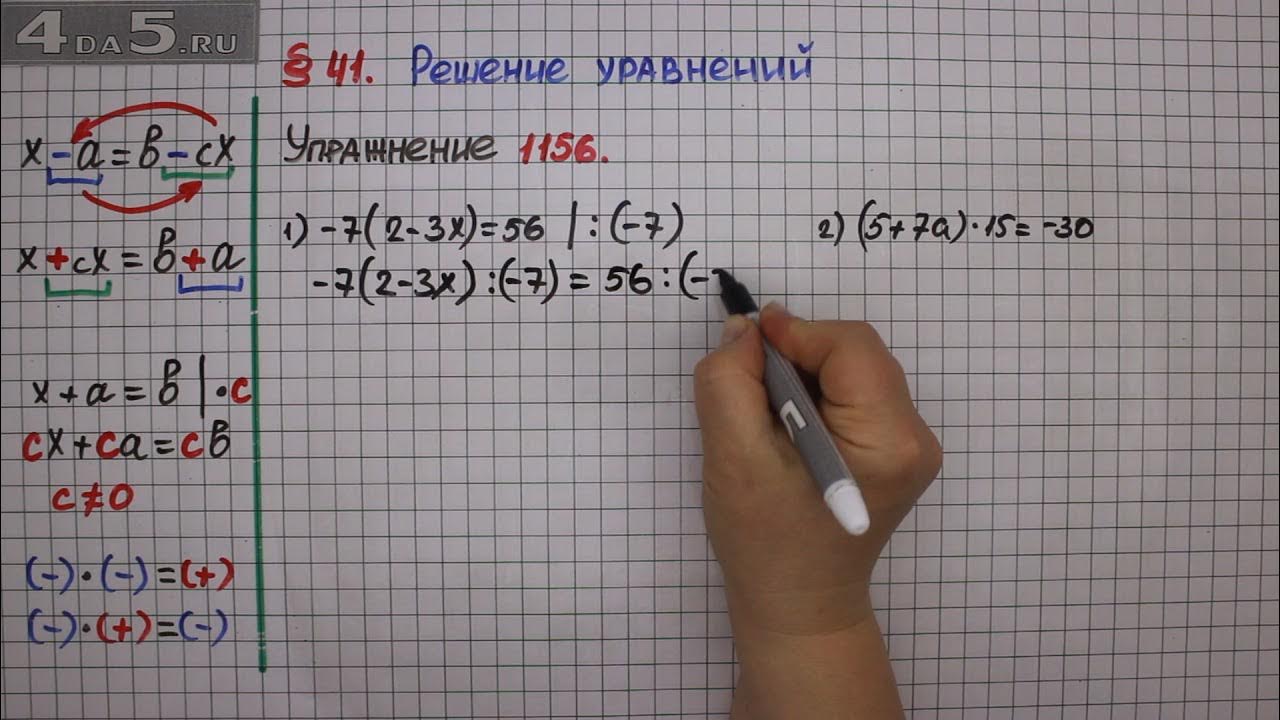 4DA5.RU
§ 41. Решение уравнений
x - a = b - cx
x + cx = b + a
x + a = b | · c
cx + ca = cb
c ≠ 0
(-) · (-) = (+)
(-) · (+) = (-)
Упражнение 1156.
1) -7(2-3x) = 56 | : (-7)
-7(2-3x) : (-7) = 56 : (-
2) (5+7a) · 15 = -30